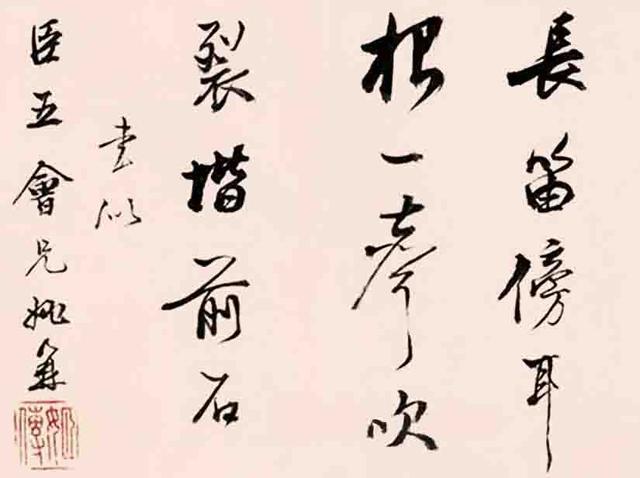 長笛傍耳
根一聲吹
裂堦前石
書似
臣五會兄姚